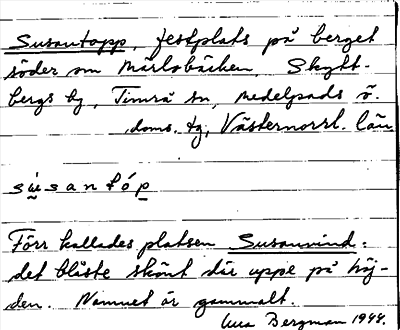 Susantopp, festplats på berget
söder om Märlobäcken, Skytt-
bergs by, Timrå sn, Medelpads ö.
doms. tg, Västernorrl. län
sùsantóp
Förr kallades platsen Susanvind:
det blåste skönt där uppe på höj-
den. Namnet är gammalt.
Bergman 1944.